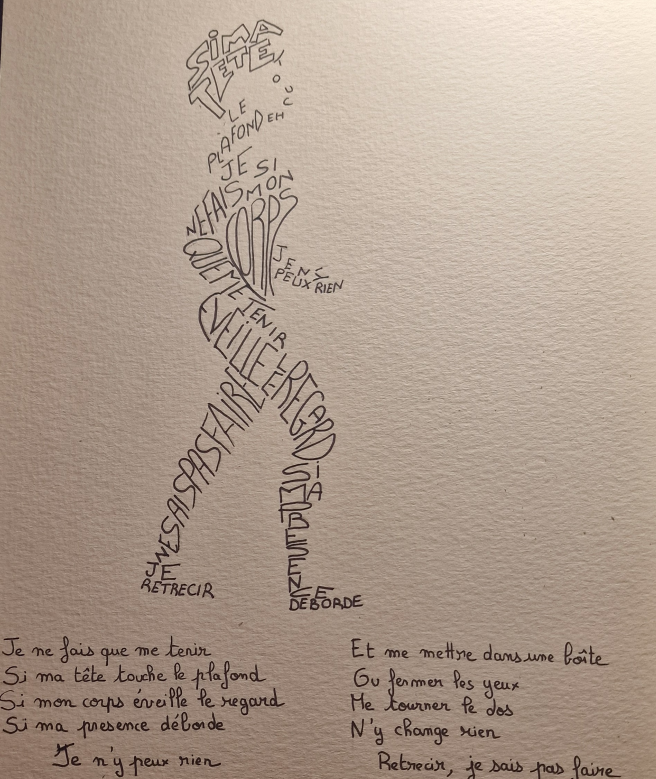 SI MA
TETE
TOUCHE
LE
PLAFOND
JE
NE FAIS
QUE ME
TENIR
SI
MON
CORPS
EVEILLE
LE
REGARD
JE N'Y
PEUX RIEN
SI MA
PRESENCE
DEBORDE
JE
NE SAIS PAS FAIRE
RETRECIR
Je ne fais que me tenir
Si ma tête touche le plafond
Si mon corps éveille le regard
Si ma presence déborde
Je n'y peux rien
Et me mettre dans une boîte
Ou fermer les yeux
Me tourner le dos
N'y change rien
Retrecir, je sais pas faire